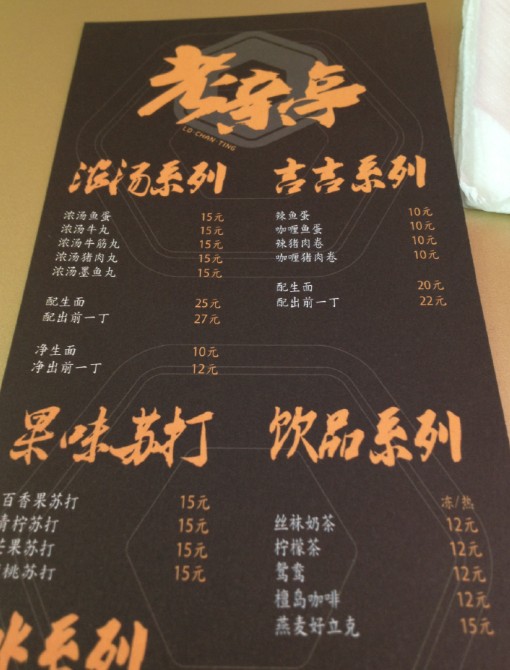 老亲亭
LO CHAN TING
浓汤系列
浓汤鱼蛋 15元
浓汤牛丸 15元
浓汤牛筋丸 15元
浓汤猪肉丸 15元
浓汤墨鱼丸 15元
配生面 25元
配出前一丁 27元
净生面 10元
净出前一丁 12元
吉吉系列
辣鱼蛋 10元
咖喱鱼蛋 10元
辣猪肉卷 10元
咖喱猪肉卷 10元
配生面 20元
配出前一丁 22元
果味苏打
百香果苏打 15元
青柠苏打 15元
芒果苏打 15元
桃苏打 15元
饮品系列
冻/热
丝袜奶茶 12元
柠檬茶 12元
鸳鸯 12元
檀岛咖啡 12元
燕麦好立克 15元
冰系列